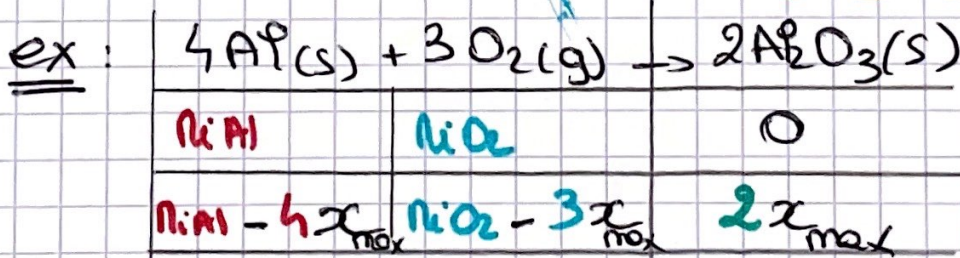 ex : 4Al(s) + 3O₂(g) → 2Al₂O₃(s)
niAl niO₂ 0
niAl - 4xmax niO₂ - 3xmax 2xmax